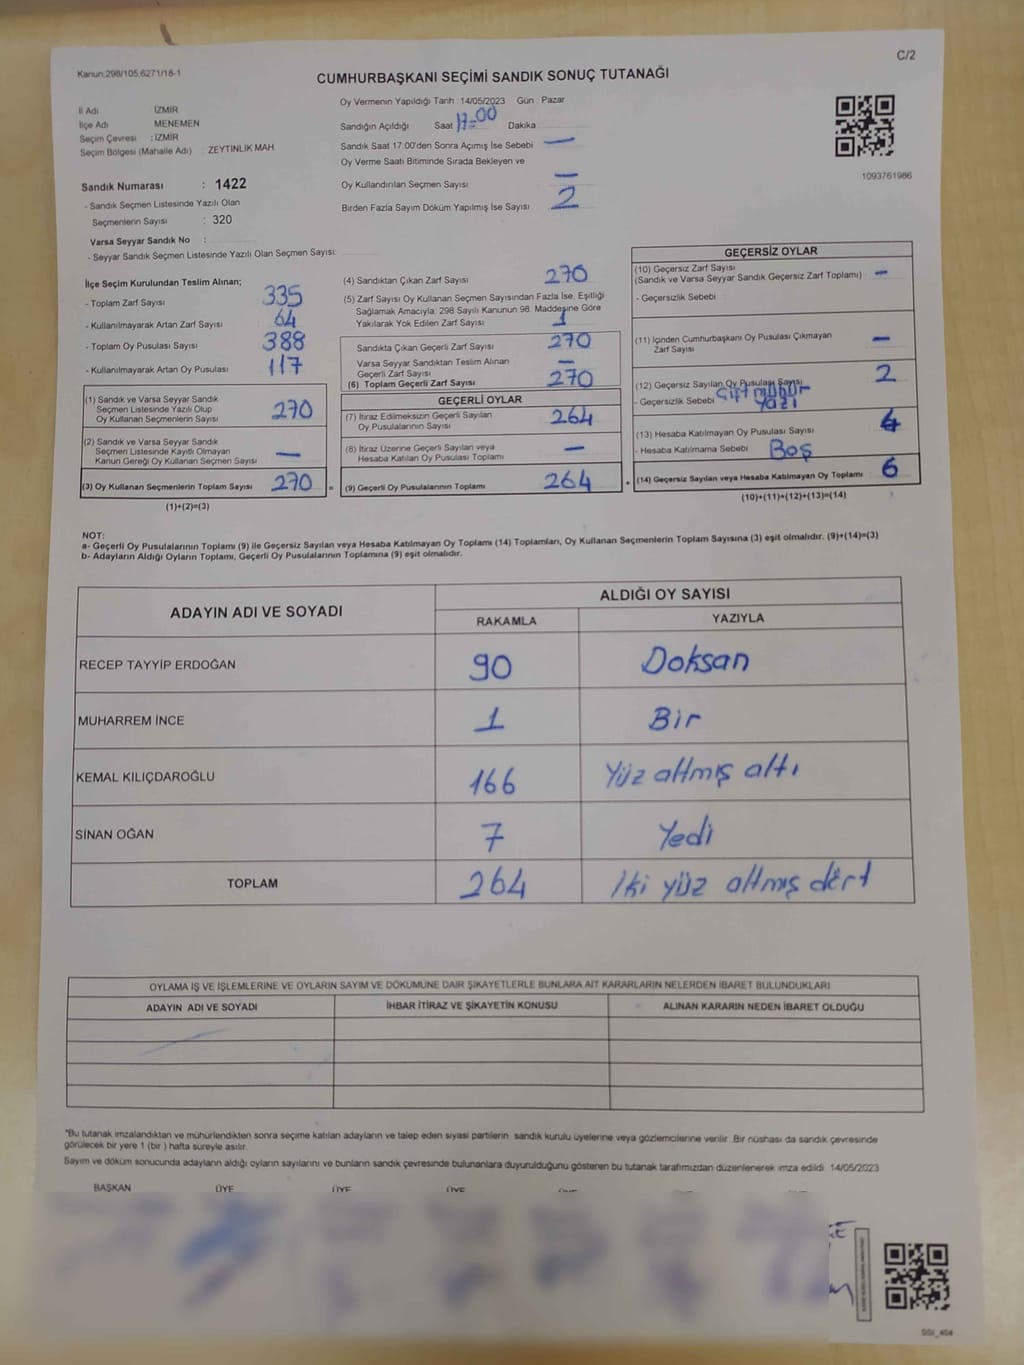 Kanun;298/105,6271/18-1
C/2
CUMHURBAŞKANI SEÇİMİ SANDIK SONUÇ TUTANAĞI
İl Adı İZMİR
İlçe Adı MENEMEN
Seçim Çevresi : İZMİR
Seçim Bölgesi (Mahalle Adı) : ZEYTİNLİK MAH.
Sandık Numarası : 1422
- Sandık Seçmen Listesinde Yazılı Olan
Seçmenlerin Sayısı : 320
Varsa Seyyar Sandık No :
- Seyyar Sandık Seçmen Listesinde Yazılı Olan Seçmen Sayısı:
Oy Vermenin Yapıldığı Tarih : 14/05/2023 Gün : Pazar
Sandığın Açıldığı Saat 17:00 Dakika
Sandık Saat 17:00'den Sonra Açımış İse Sebebi —
Oy Verme Saati Bitiminde Sırada Bekleyen ve
Oy Kullandırılan Seçmen Sayısı —
Birden Fazla Sayım Döküm Yapılmış İse Sayısı 2
1093761986
İlçe Seçim Kurulundan Teslim Alınan;
- Toplam Zarf Sayısı 335
- Kullanılmayarak Artan Zarf Sayısı 64
- Toplam Oy Pusulası Sayısı 388
- Kullanılmayarak Artan Oy Pusulası 117
(1) Sandık ve Varsa Seyyar Sandık
Seçmen Listesinde Yazılı Olup
Oy Kullanan Seçmenlerin Sayısı 270
(2) Sandık ve Varsa Seyyar Sandık
Seçmen Listesinde Kayıtlı Olmayan
Kanun Gereği Oy Kullanan Seçmen Sayısı —
(3) Oy Kullanan Seçmenlerin Toplam Sayısı 270 =
(1)+(2)=(3)
(4) Sandıktan Çıkan Zarf Sayısı 270
(5) Zarf Sayısı Oy Kullanan Seçmen Sayısından Fazla İse, Eşitliği
Sağlamak Amacıyla; 298 Sayılı Kanunun 98. Maddesine Göre
Yakılarak Yok Edilen Zarf Sayısı 1
Sandıkta Çıkan Geçerli Zarf Sayısı 270
Varsa Seyyar Sandıktan Teslim Alınan
Geçerli Zarf Sayısı —
(6) Toplam Geçerli Zarf Sayısı 270
GEÇERLİ OYLAR
(7) İtiraz Edilmeksizin Geçerli Sayılan
Oy Pusulalarının Sayısı 264
(8) İtiraz Üzerine Geçerli Sayılan veya
Hesaba Katılan Oy Pusulası Toplamı —
(9) Geçerli Oy Pusulalarının Toplamı 264 +
GEÇERSİZ OYLAR
(10) Geçersiz Zarf Sayısı
(Sandık ve Varsa Seyyar Sandık Geçersiz Zarf Toplamı) —
- Geçersizlik Sebebi
(11) İçinden Cumhurbaşkanı Oy Pusulası Çıkmayan
Zarf Sayısı —
(12) Geçersiz Sayılan Oy Pusulası Sayısı 2
- Geçersizlik Sebebi Çift mühür
Yazı
(13) Hesaba Katılmayan Oy Pusulası Sayısı 4
- Hesaba Katılmama Sebebi Boş
(14) Geçersiz Sayılan veya Hesaba Katılmayan Oy Toplamı 6
(10)+(11)+(12)+(13)=(14)
NOT:
a- Geçerli Oy Pusulalarının Toplamı (9) ile Geçersiz Sayılan veya Hesaba Katılmayan Oy Toplamı (14) Toplamları, Oy Kullanan Seçmenlerin Toplam Sayısına (3) eşit olmalıdır. (9)+(14)=(3)
b- Adayların Aldığı Oyların Toplamı, Geçerli Oy Pusulalarının Toplamına (9) eşit olmalıdır.
ADAYIN ADI VE SOYADI
ALDIĞI OY SAYISI
RAKAMLA YAZIYLA
RECEP TAYYİP ERDOĞAN 90 Doksan
MUHARREM İNCE 1 Bir
KEMAL KILIÇDAROĞLU 166 Yüz altmış altı
SİNAN OĞAN 7 Yedi
TOPLAM 264 İki yüz altmış dört
OYLAMA İŞ VE İŞLEMLERİNE VE OYLARIN SAYIM VE DÖKÜMÜNE DAİR ŞİKAYETLERLE BUNLARA AİT KARARLARIN NELERDEN İBARET BULUNDUKLARI
ADAYIN ADI VE SOYADI İHBAR İTİRAZ VE ŞİKAYETİN KONUSU ALINAN KARARIN NEDEN İBARET OLDUĞU
*Bu tutanak imzalandıktan ve mühürlendikten sonra seçime katılan adayların ve talep eden siyasi partilerin sandık kurulu üyelerine veya gözlemcilerine verilir. Bir nüshası da sandık çevresinde
görülecek bir yere 1 (bir ) hafta süreyle asılır.
Sayım ve döküm sonucunda adayların aldığı oyların sayılarını ve bunların sandık çevresinde bulunanlara duyurulduğunu gösteren bu tutanak tarafımızdan düzenlenerek imza edildi 14/05/2023
BAŞKAN ÜYE ÜYE ÜYE